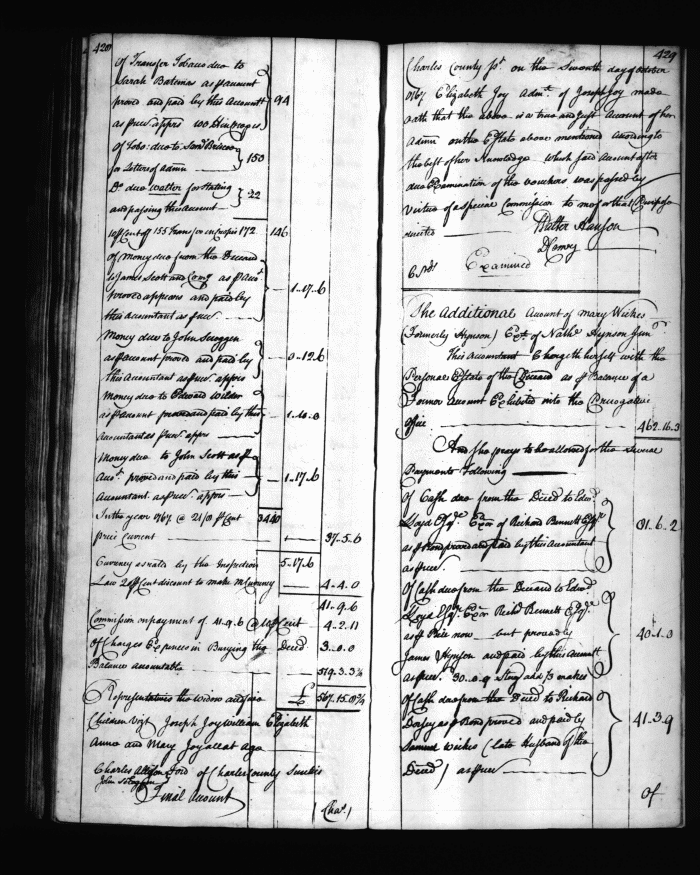 428
Of Transfer Tobacco due to
Sarah Bateman as p Account
proved and paid by this Accountt 94
as p rec. apprs 100
of Tobo. due to Benj Briscoe
for Letters of admn 150
Do due Walter for Stating
and passing this Account 22
146
of Money due from the Deceased
to James Scott and Comp as p Acct
proved appears and paid by 1..17..6
this accountant as p rec.
Money due to John Scroggen
as p Account proved and paid by 0..12..6
this Accountant as p rec. apprs
Money due to Edward Welder
as p Account proved and paid by this 1..10..0
Accountant as p rec. appr
Money due to John Scott as p
Acct proved and paid by this 1..17..6
Accountant as p rec. appr
In the year 1767 @ 21/8 p Cent 3440
price Current 37..5..0
Currency as rated by the Inspection 5..17..6
Law 2 p Cent discount to make Currency 4..4..0
41..9..6
Commission on payment of 41..9..6 @ 10 p Cent 4..2..11
Of Charges Expences in Burying the Deced 3..0..0
Balance accountable 519..3..3¼
Representatives the widow and £ 567..15..
Children Vizt Joseph Joy William Elizabeth
Anne and Mary Joy all at age
Charles Allison Ford of Charles County Sureties
John Scroggen
Final Account
(Cha.)
429
Charles County Jst. on the Seventh day of October
1767 Elizabeth Joy Admx. of Joseph Joy made
oath that the above is a true and just Account of her
Admn on the Estate above mentioned according to
the best of her Knowledge Which said Account after
due Examination of the vouchers was passed by
Virtue of a special Commission to me for that Purpose
directed Walter Hanson
DComry
Examined
The Additional Account of Mary Wickes
(Formerly Hynson) Exx. of Nathl. Hynson Junr
This Accountant Chargeth herself with the
Personal Estate of the Deceased as p Balance of a
Former Account Exhibited into the Prerogative
Office 462..16..3
And she prays to be allowed for the several
Payments Following
Of Cash due from the Deced to Edwd
Lloyd Esqr. Exor of Richard Bennett Esqr. 31..6..2
as p Bond proved and paid by this Accountant
as p rec.
Of Cash due from the Deceased to Edwd
Lloyd Esqr. Exr. Richd Bennett Esqr.
as p Note now but proved by 40..1..0
James Hynson and paid by this Accountt
as p rec. 30..0..9 Sterg add ⅓ makes
Of Cash due from the Deced to Richard
Dorsey as p Bond proved and paid by
Samuel Wickes (late Husband of the 41..3..9
Deced) as p rec
Of